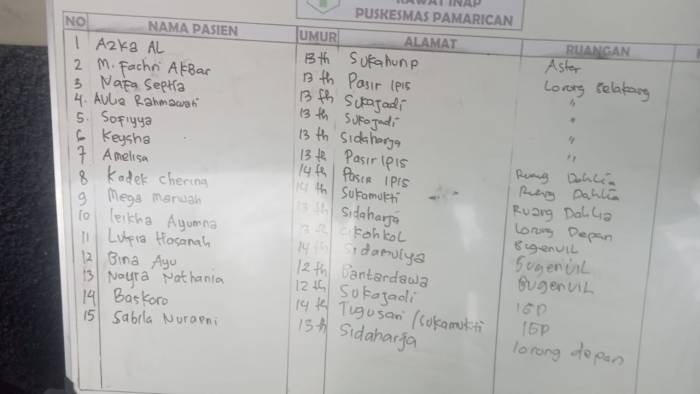 RAWAT INAP
PUSKESMAS PAMARICAN
NO NAMA PASIEN UMUR ALAMAT RUANGAN
1 Azka AL 13 th Sukahurip Aster
2 M. Fachri Akbar 13 th Pasir Ipis Lorong Belakang
3 Nafa Septia 13 th Sukajadi "
4. Aulia Rahmawati 13 th Sukajadi "
5. Sofiyya 13 th Sidaharja "
6 Keysha 13 th Pasir Ipis "
7 Amelisa 14 th Pasir Ipis Ruang Dahlia
8 Kadek Chering 14 th Sukamukti Ruang Dahlia
9 Mega Marwah 13 th Sidaharja Ruang Dahlia
10 Ayumna Cikohkol Lorong Depan
11 Hasanah 14 th Sidamulya Bugenvil
12 Bina Ayu 12 th Bantardawa Bugenvil
13 Nayra Nathania 12 th Sukajadi Bugenvil
14 Baskoro 14 th Tugusari /Sukamukti IGD
15 Sabila Nuraeni 13 th Sidaharja IGD
lorong depan